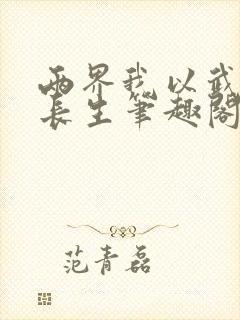 两界我以武
长生笔趣阁
范青磊